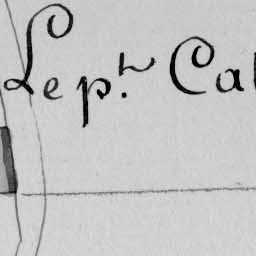 Leph. Cal